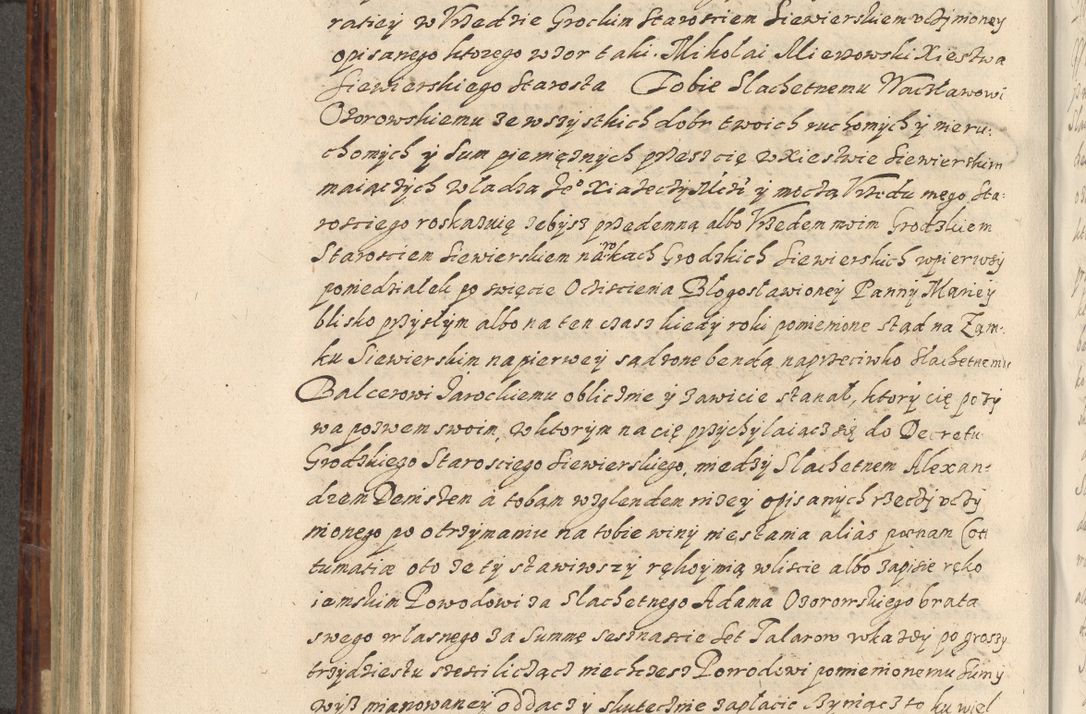 raściey w Vrzędzie Grockim Starosciem Siewierskiem vczÿmioneÿ
opisanego ktorego wzor taki. Mikolai Mierzowski Xiestwa
Siewierskiego Starosta Tobie Slachetnemu Wacławowi
Ozorowskiemu ze wszystkich dobr twoich ruchomych ÿ nieru-
chomych ÿ Sum pieniężnych przesz cię w Xiestwie Siewierskim
maiączych władzą Je° Xiażęczÿ Mści ÿ moczą Vrzędu mego Sta-
rosciego roskazuię zebÿsz przedemną albo Vrzędem moim Grodzkiem
Starosciem Siewierskiem na rokach Grodzkich Siewierskich w pierwszÿ
poniedzialek po swięcie Ocziscienia Błogosławioneÿ Pannÿ Marieÿ
blisko przÿsłÿm albo na ten czasz kiedÿ roki pomienione stąd na Zam-
ku Siewierskim napierweÿ sądzone bendą naprzeciwko Slachetnemu
Balcerowi Jarockiemu oblicznie ÿ zawicie stanął, ktorÿ cię pozÿ
wa pozwem swoim, w ktorÿm na cię przÿchÿlaiącz się do Decretu
Grodzkiego Starosciego Siewierskiego, miedzÿ Slachetnem Alexan-
drem a tobam wzglendem nizeÿ opisanÿch rzeczÿ vczÿ
nionego po otrzÿmaniu na tobie winÿ niestania alias poznam Con
tumatiæ oto ze tÿ stawiwszÿ rękoÿmią w liscie albo zapisie ręko
iemskim Powodowi za Slachetnego Adama Ozorowskiego brata
swego własnego za Summę sesznascie set Talarow w kazdÿ po groszÿ
trzÿdziestu szesci licząc niechcesz Powodowi pomienionemu Sumÿ
wÿsz mianowaneÿ oddacz ÿ skutecznie zaplacic czÿniącz to ku wiel